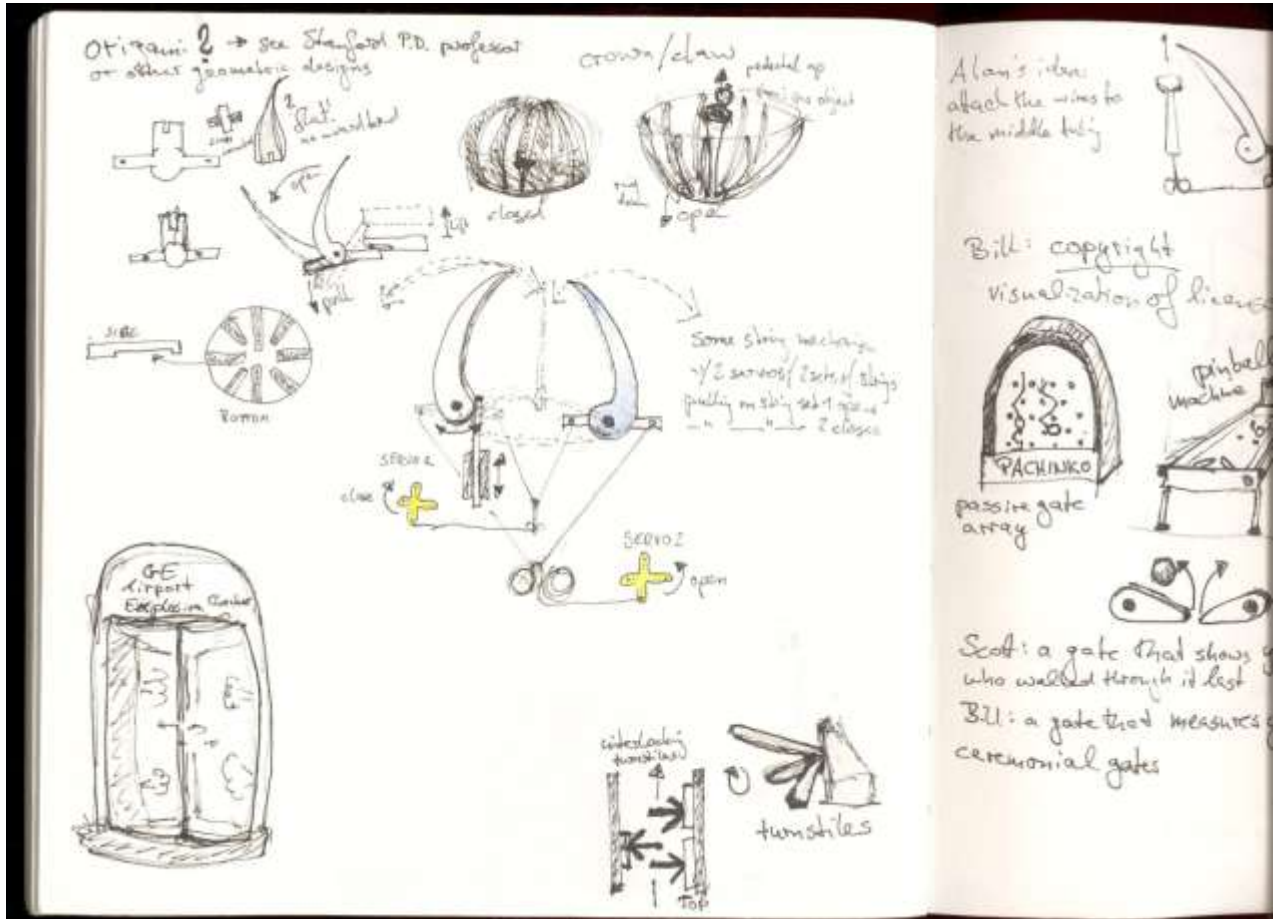 Origami ? → see Stanford P.D. professor
or other geometric designs
crown/claw
pedestal up
object
flat!
open
closed
open
Lift
pull
SIDE
BOTTOM
Some string mechanism
w/ 2 servos / 2 sets / strings
pulling on string set 1 opens
2 closes
SERVO
close
SERVO 2
open
GE
Airport
Explosion
interlocking
turnstiles
TOP
turnstiles
Alan's idea:
attach the wires to
the middle
Bill: copyright
visualization of
pinball
machine
PACHINKO
passive gate
array
Scott: a gate that shows
who walked through it last
Bill: a gate that measures
ceremonial gates